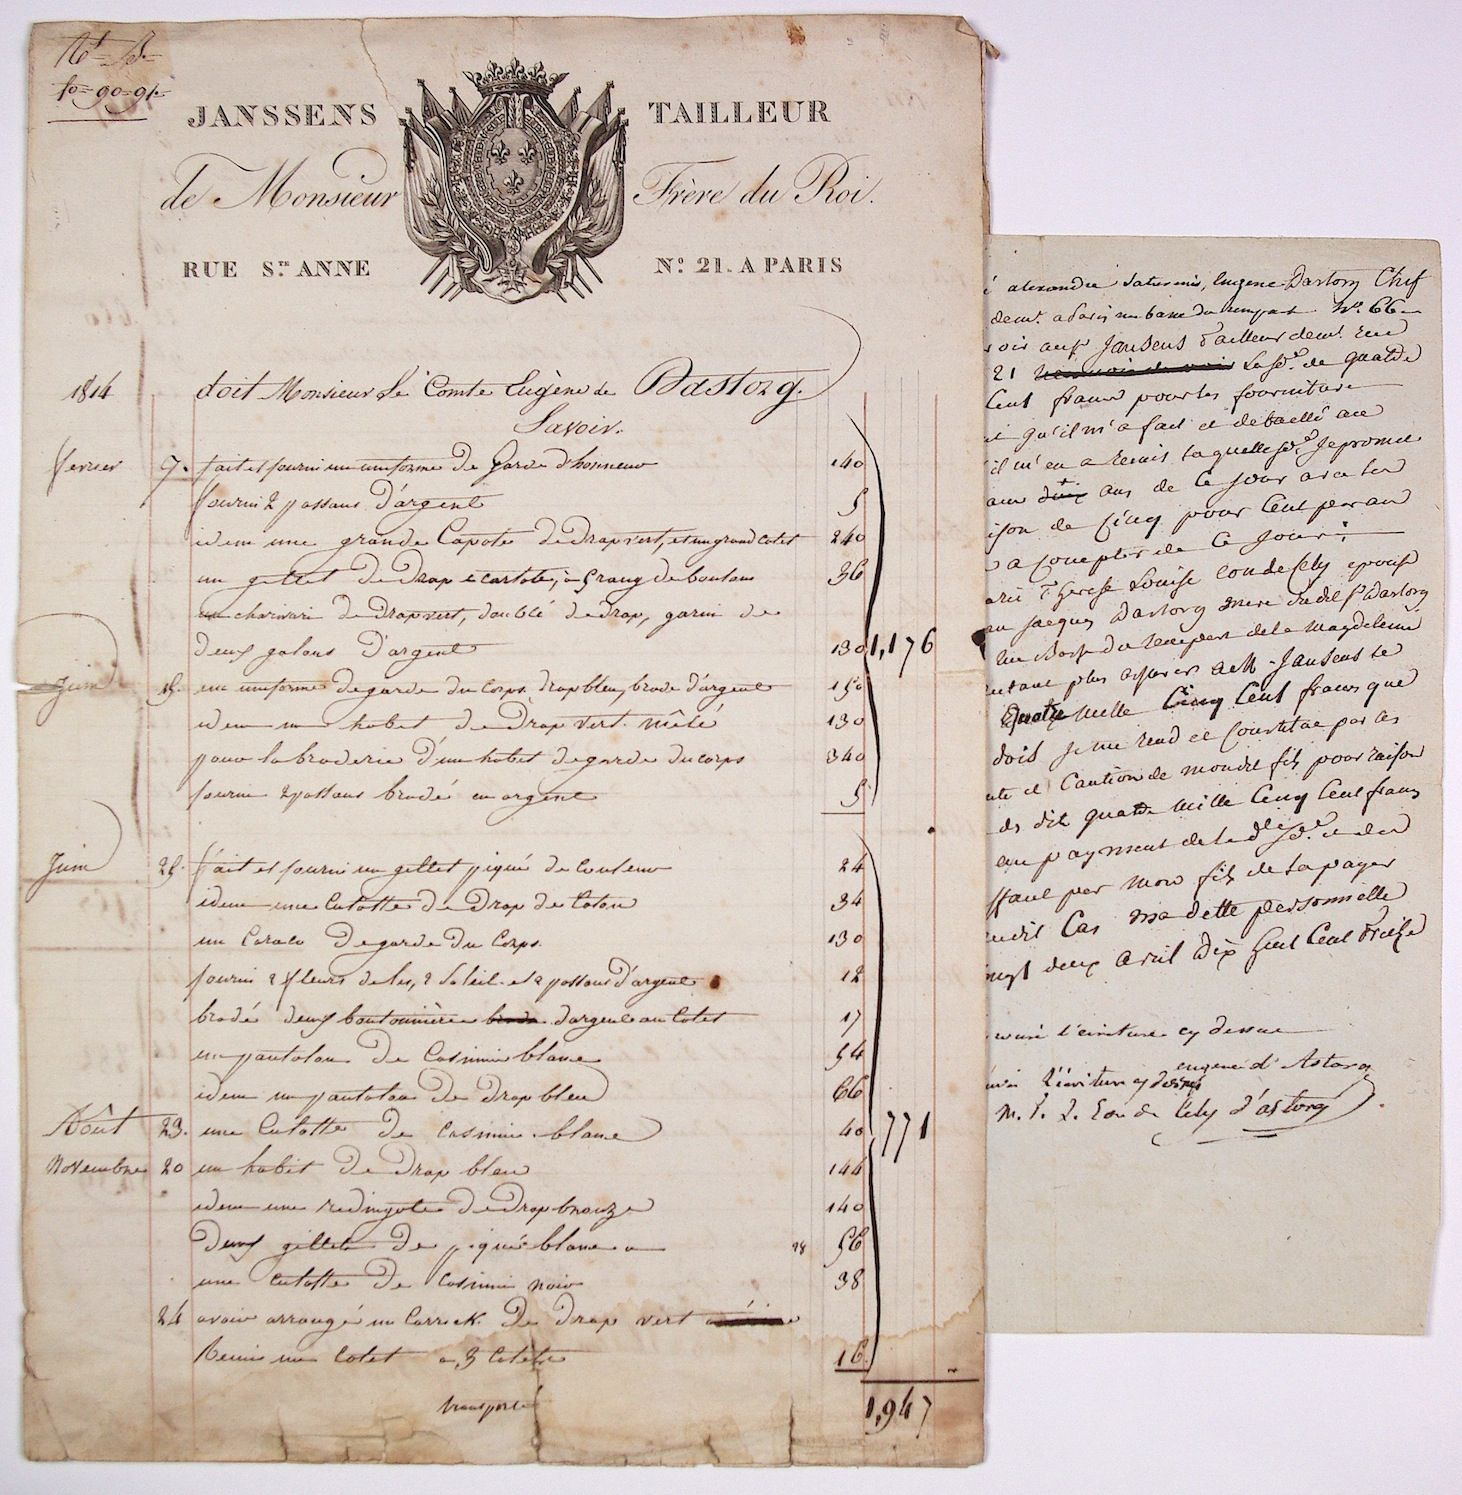 fo 90-91
JANSSENS TAILLEUR
de Monsieur Frère du Roi.
RUE Ste ANNE No. 21. A PARIS
1814 doit Monsieur Le Comte Eugène de Dastorg.
Savoir.
fevrier 7. fait et fourni un uniforme De Garde d'honneur 140
fourni 2 possans D'argent 5
idem une grande Capotte De Drap vert, et un grand Colet 240
un gillet De Drap ecarlate, a 5 rang de boutons 36
un charivari De Drap vert, doublé de drap, garni de
Deux galons D'argent 130 1,176
Juin 15. un uniforme De garde du Corps, drap bleu, brodé d'argent 150
idem un habit de Drap vert mêlé 130
pour la broderie D'un habit De garde du corps 340
fourni 2 possans brodé en argent 5
Juin 25. fait et fourni un gillet piqué de Couleur 24
idem une Culotte De Drap De Coton 34
un De garde Du Corps 130
fourni 2 fleurs de lis, 2 Soleil et 2 possans D'argent 12
brodé deux boutonnière d'argent au Colet 17
un pantalon De Casimir blanc 54
idem un pantalon De Drap bleu 66
Août 23. une Culotte De Casimir blanc 40 771
Novembre 20 un habit De Drap bleu 144
idem une redingote De Drap bronze 140
Deux gillets De piqué blanc a 28 56
une culotte De Casimir noir 38
24 avoir arrangé un Carrick De Drap vert
Remis un Colet a 3 Colets 16
transporté 1,947
alexandre Saturnin, Eugene Dastorg Chef
demt. a Paris rue basse du rempart No. 66
Jansens Tailleur demt. Rue
21 La Se. de quatre
Cent francs pour les fourniture
qu'il m'a fait et détaillé au
il m'en a Remis laquelle Se. Je promet
ans de Ce Jour avec les
de Cinq pour Cent par an
a Compter de Ce Jour;
Therese Louise Eon de Cely epouse
Jacques Dastorg mere dudit Sr. Dastorg
Rue Basse Du Rempart de la Magdeleine
plus assurer a Mr. Jansens le
Quatre Mille Cinq Cent francs que
dois Je me rend et Constitue par Ces
et Caution de mondit fils pour raison
des dits quatre Mille Cinq Cent francs
au payment de lade. Se. et
par Mon fils de la payer
Cas ma dette personnelle
deux Avril Dix huit Cent Treize
l'écriture cy dessus
eugene d'Astorg
l'écriture cy dessus
M. T. L. Eon de Cely d'astorg